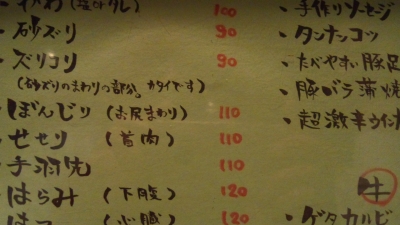 かわ(塩orタレ) 100
・砂ズリ 90
・ズリコリ 90
(砂ズリのまわりの部分。カタイです)
・ぼんじり(お尻まわり) 110
・せせり(首肉) 110
・手羽先 110
・はらみ(下腹) 120
はつ(心臓) 120
・手作りソーセージ
・タンナンコツ
・たべやすい豚足
・豚バラ蒲焼
・超激辛ウインナ
牛
・ゲタカルビ